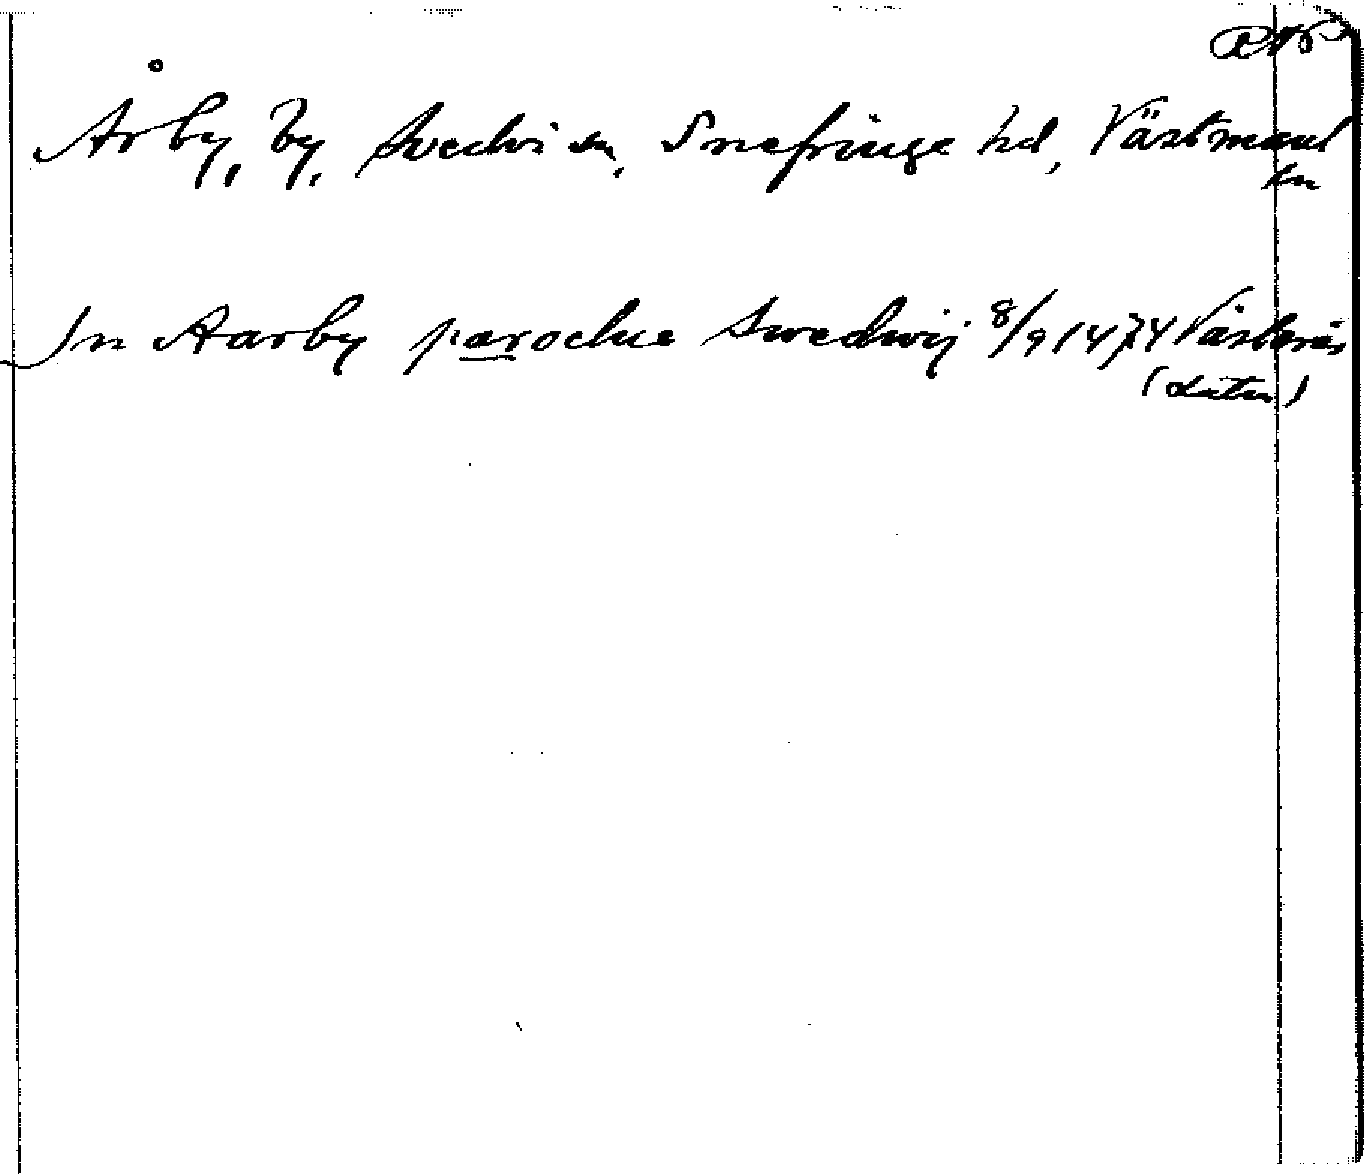 Årby, by, Svedvi sn, Snefringe hd, Västmanl
ln
In Aarby parochie Swedwij 8/9 1474 Västerås
(latin)